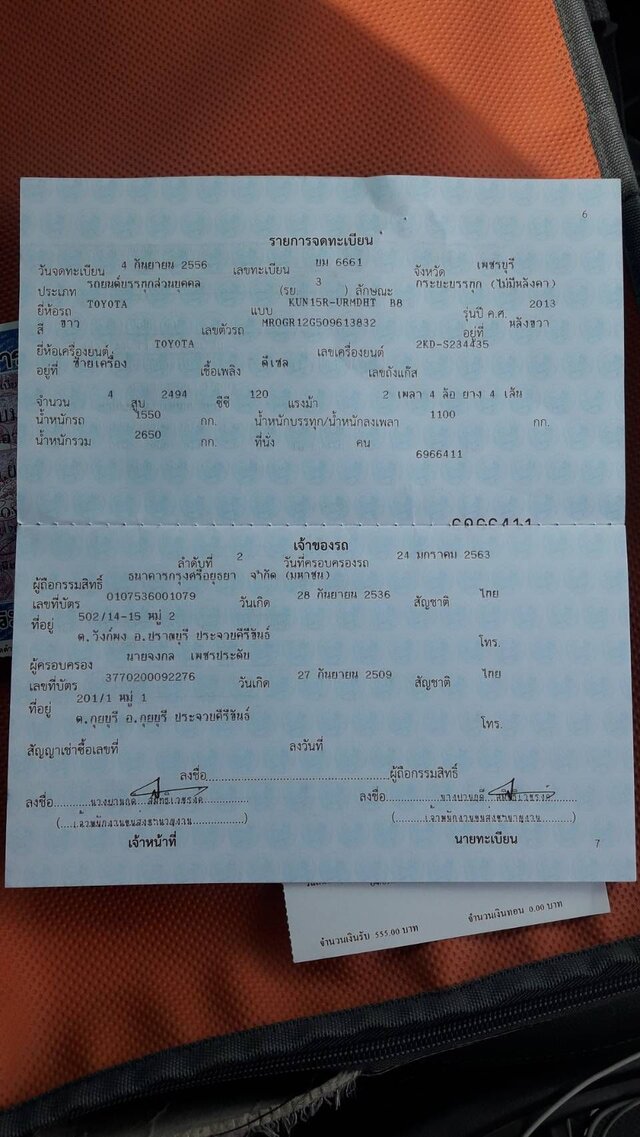 6
รายการจดทะเบียน
วันจดทะเบียน 4 กันยายน 2556 เลขทะเบียน บม 6661 จังหวัด เพชรบุรี
ประเภท รถยนต์บรรทุกส่วนบุคคล (รย. 3 ) ลักษณะ กระบะบรรทุก (ไม่มีหลังคา)
ยี่ห้อรถ TOYOTA แบบ KUN15R-URMDHT B8 รุ่นปี ค.ศ. 2013
สี ขาว เลขตัวรถ MR0GR12G509613832 อยู่ที่ หลังขวา
ยี่ห้อเครื่องยนต์ TOYOTA เลขเครื่องยนต์ 2KD-S234435
อยู่ที่ ซ้ายเครื่อง เชื้อเพลิง ดีเซล เลขถังแก๊ส
จำนวน 4 สูบ 2494 ซีซี 120 แรงม้า 2 เพลา 4 ล้อ ยาง 4 เส้น
น้ำหนักรถ 1550 กก. น้ำหนักบรรทุก/น้ำหนักลงเพลา 1100 กก.
น้ำหนักรวม 2650 กก. ที่นั่ง คน
6966411
6966411
เจ้าของรถ
ลำดับที่ 2 วันที่ครอบครองรถ 24 มกราคม 2563
ผู้ถือกรรมสิทธิ์ ธนาคารกรุงศรีอยุธยา จำกัด (มหาชน)
เลขที่บัตร 0107536001079 วันเกิด 28 กันยายน 2536 สัญชาติ ไทย
ที่อยู่ 502/14-15 หมู่ 2
ต.วังก์พง อ.ปราณบุรี ประจวบคีรีขันธ์ โทร.
ผู้ครอบครอง นายจงกล เพชรประดับ
เลขที่บัตร 3770200092276 วันเกิด 27 กันยายน 2509 สัญชาติ ไทย
ที่อยู่ 201/1 หมู่ 1
ต.กุยบุรี อ.กุยบุรี ประจวบคีรีขันธ์ โทร.
สัญญาเช่าซื้อเลขที่ ลงวันที่
ลงชื่อ ผู้ถือกรรมสิทธิ์
ลงชื่อ ลงชื่อ
(เจ้าพนักงานขนส่งชำนาญงาน) (เจ้าพนักงานขนส่งชำนาญงาน)
เจ้าหน้าที่ นายทะเบียน
7
จำนวนเงินรับ 555.00 บาท จำนวนเงินทอน 0.00 บาท